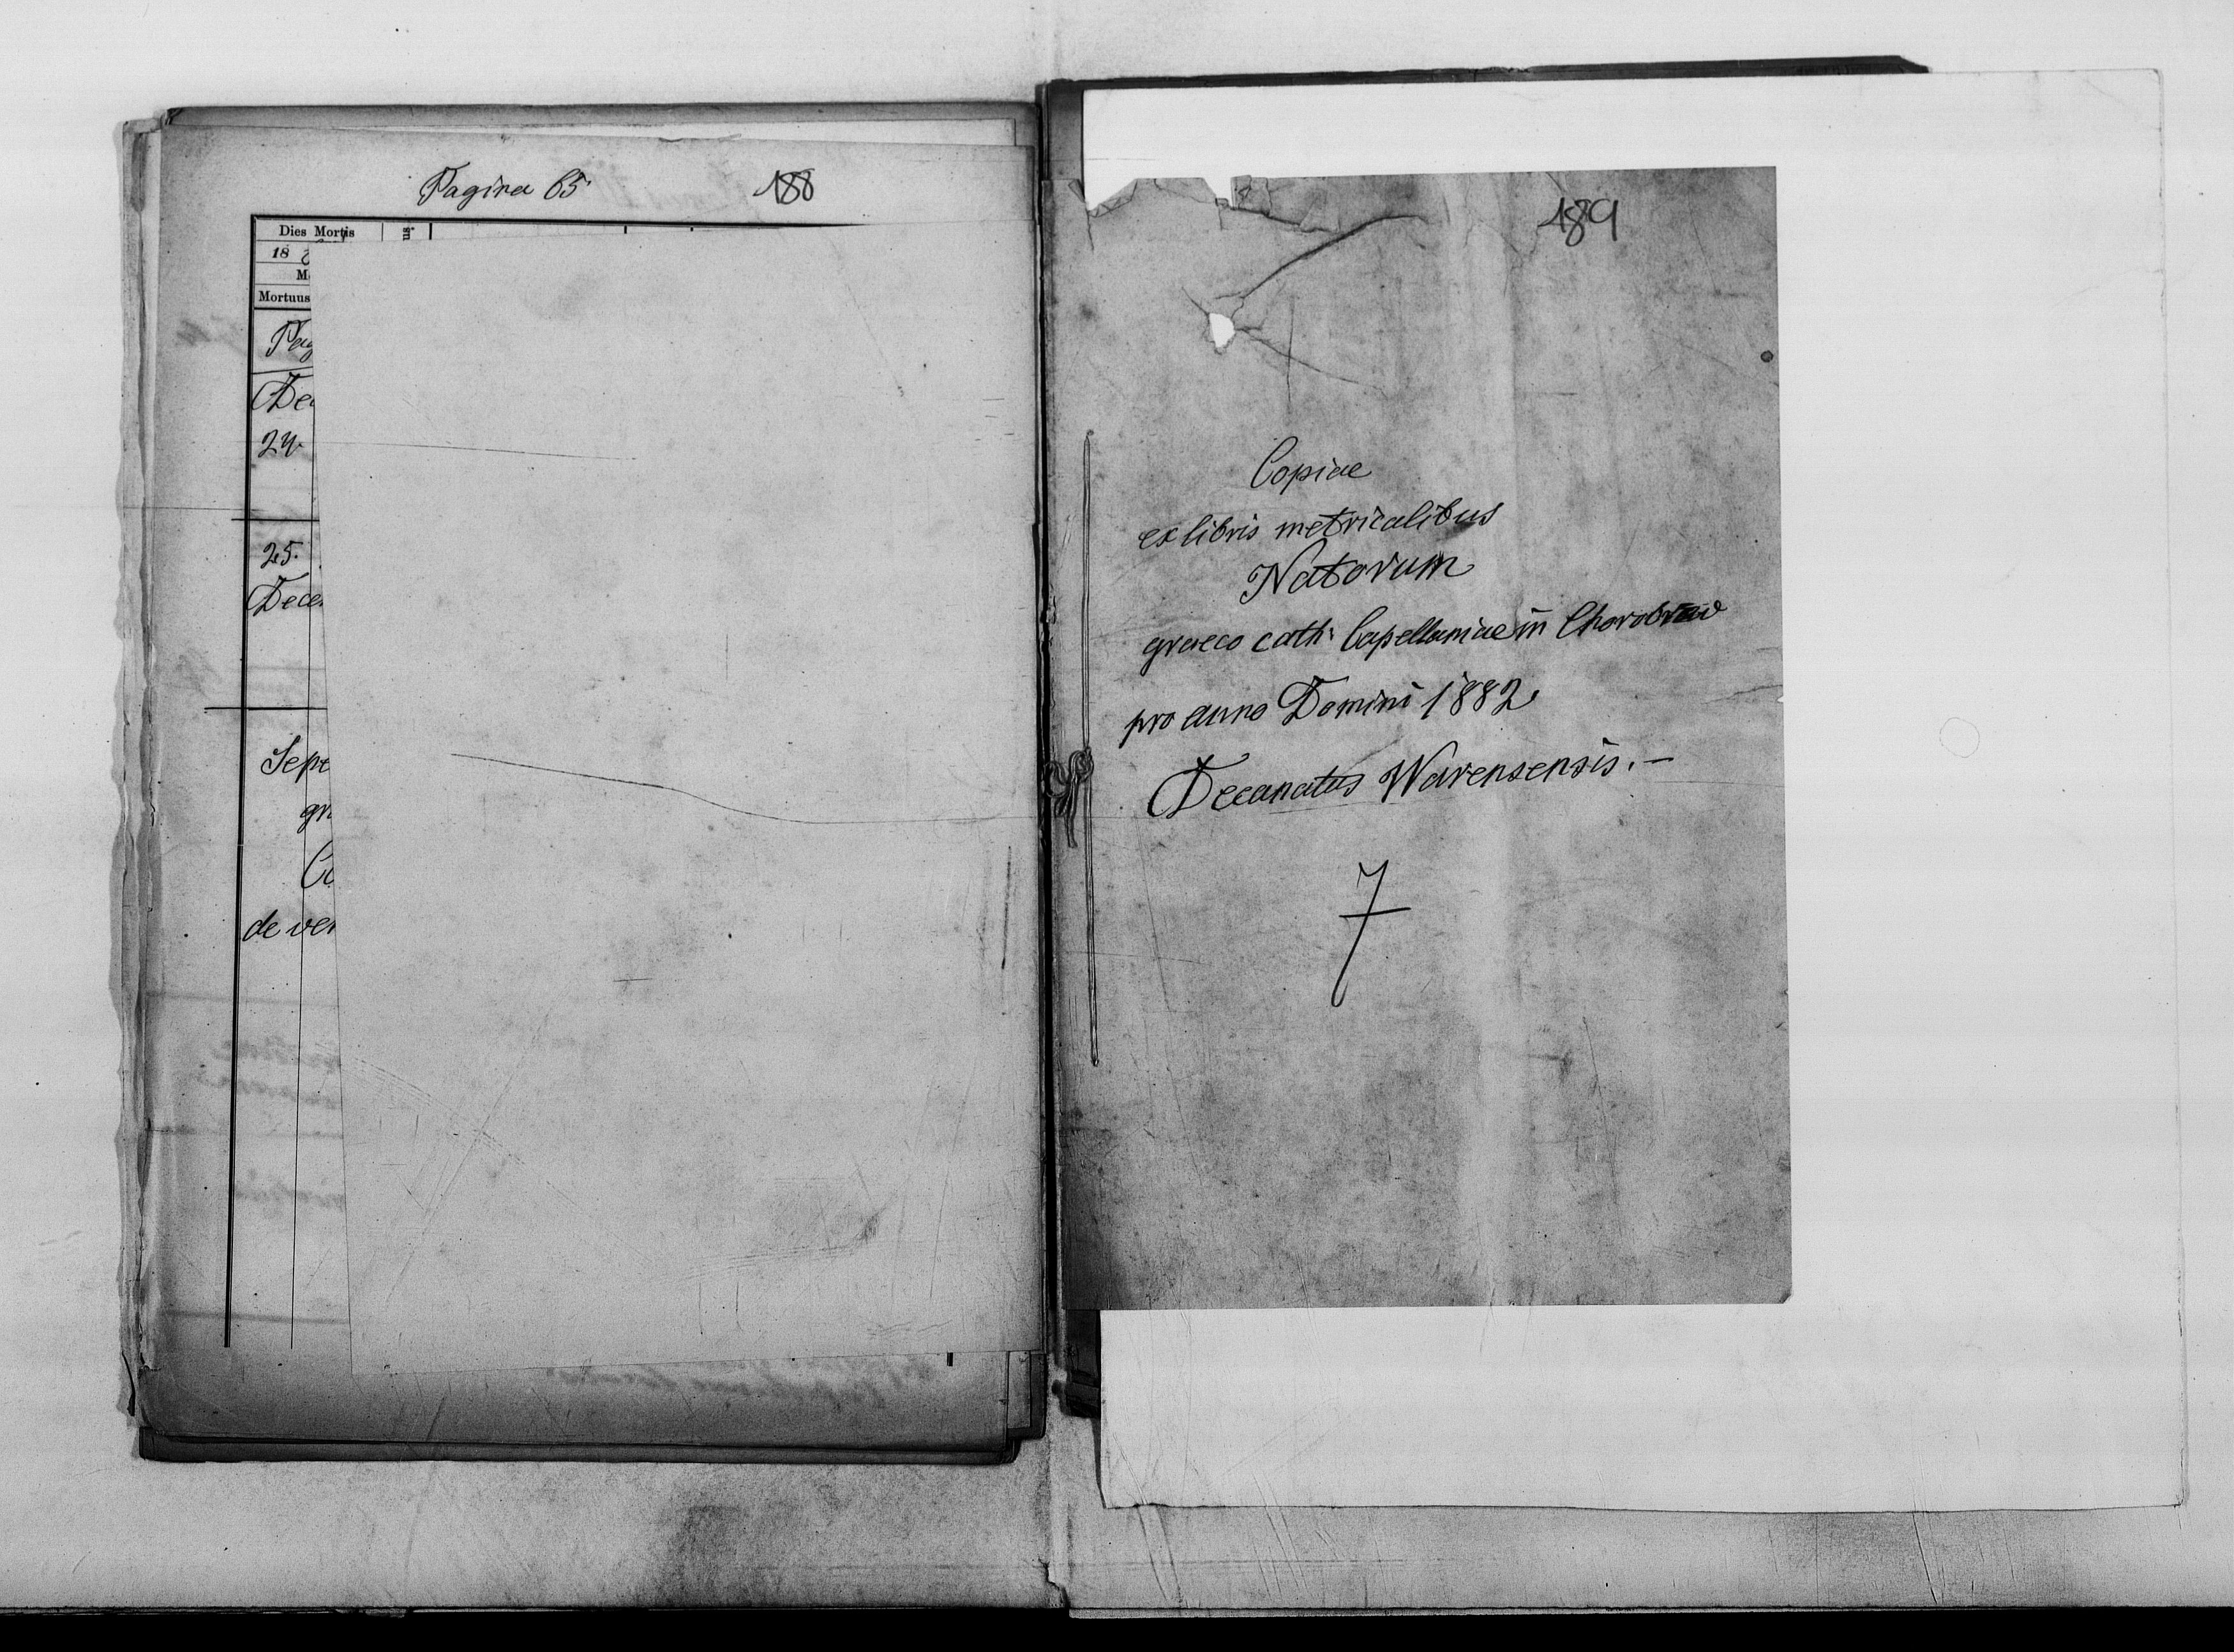 Pagina 65
188
Dies Mortis
us.
18
M
Mortuus
Pag
De
24.
25.
Dece
Sept
gr
Co
de ver
189
Copiae
ex libris metricalibus
Natorum
graeco cath. Capellaniae in
pro anno Domini 1882.
Decanatus Warensensis. —
7